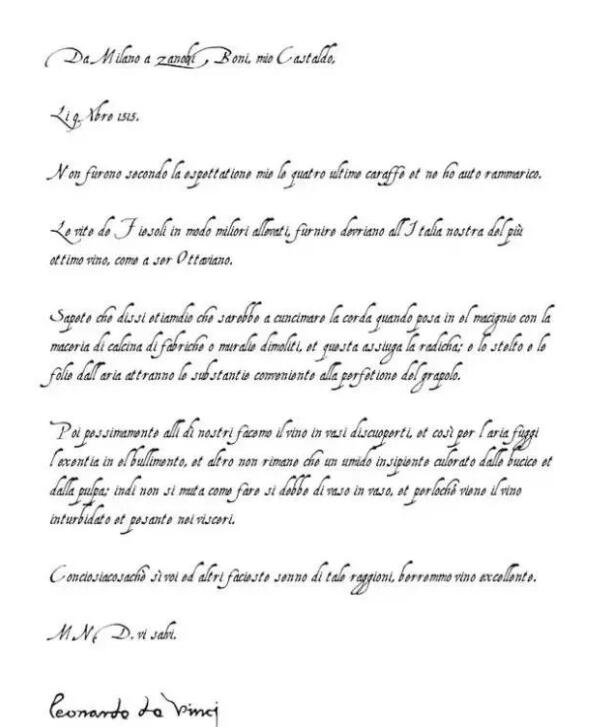 Da Milano a zanobi Boni, mio Castaldo,
Li 9 Xbre 1515.
Non furono secondo la espettatione mie le quatro ultime caraffe et ne ho auto rammarico.
Le vite de Fiesoli in modo miliori allevati, furnire devriano all'Italia nostra del più
ottimo vino, come a ser Ottaviano.
Sapete che dissi etiamdio che sarebbe a cuncimare la corda quando posa in el macignio con la
maceria di calcina di fabriche o muralie dimoliti, et questa assiuga la radicha; e lo stelto e le
folie dall'aria attranno le substantie conveniente alla perfetione del grapolo.
Poi pessimamente alli dì nostri facemo il vino in vasi discuoperti, et così per l'aria fuggi
l'exentia in el bullimento, et altro non rimane che un umido insipiente culorato dalle bucice et
dalla pulpa; indi non si muta come fare si debbe di vaso in vaso, et perlochè viene il vino
inturbidato et pesante nei visceri.
Conciosiacosachè sì voi ed altri facieste senno di tale raggioni, berremmo vino excellente.
M N. D. vi salvi.
Leonardo da Vinci